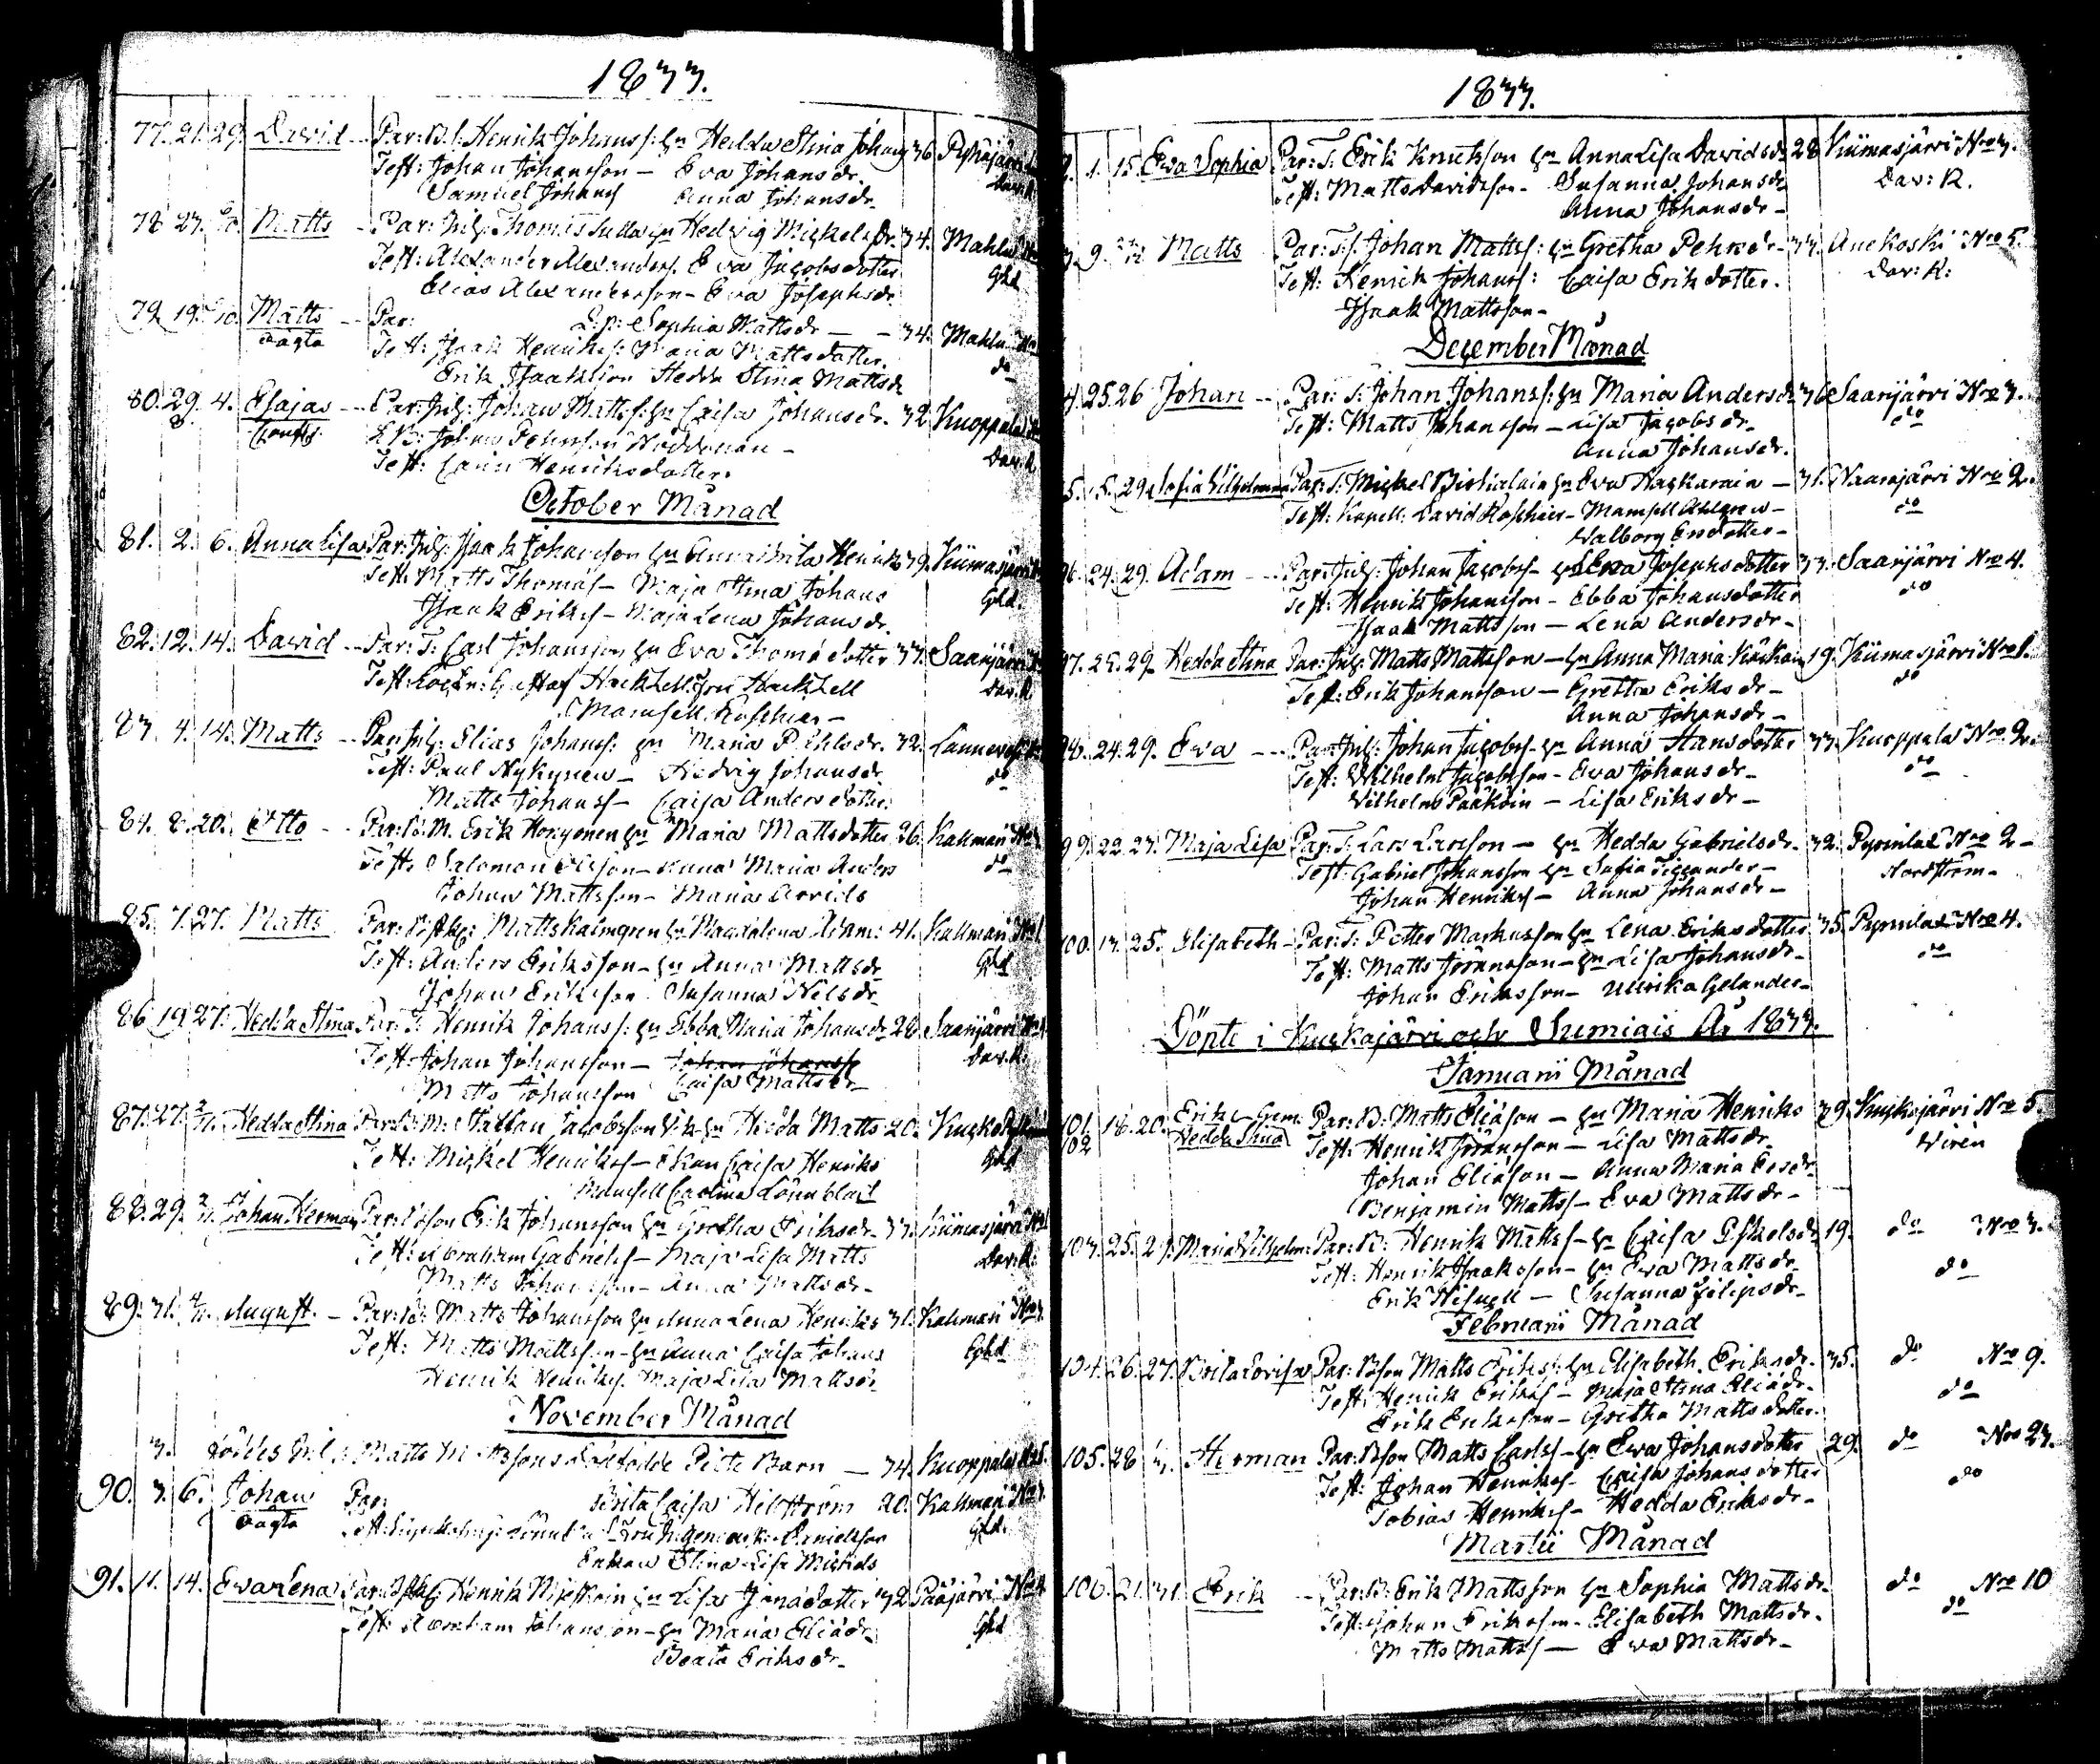 1833.
77. 21. 29. David -- Par: B.S. Henrik Johanss: hu Hedda Stina Johans 36 Pyhäjärvi
Test: Johan Johansson - Eva Johansdr. Dav: R.
Samuel Johanss Anna Johansdr.
78 23. Matts - Par: Inh: Thomas hu Hedvig Mickelsdr. 34. Mahlu No
Test: Alexander Alexanders. Eva Jacobsdotter Ghd
Elias Alexandersson - Eva Josephsdr
79 19. Matts -- Par: L.p: Sophia Mattsdr -- 34. Mahlu No
oägta Test: Isaak Henrikss: Maria Mattsdotter do
Erik Isaaksson Hedda Stina Mattsdr
80. 29. 4. Esajas -- Par: Inh: Johan Mattss: hu Caisa Johansdr. 32 Knoppala No
Johan Pehrsson -
Test: Carin Henriksdotter. Dav: R.
October Månad
81. 2. 6. Anna Lisa Par: Inh: Isaak Johansson hu Anna Brita Henriks 39. Kiimasjärvi No
Test: Matts Thomass - Maja Stina Johans Ghd.
Isaak Erikss - Maja Lena Johansdr.
82. 12. 14. David -- Par: T: Carl Johansson hu Eva Thomædotter 33. Saarijärvi No
Test: Gustaf Hackzell Fru Hackzell Dav: R.
Mamsell Roschier -
83. 4. 14. Matts -- Par: Inh: Elias Johanss: hu Maria Pehlsdr. 32.
Test: Paul Nykynen - Hedvig Johansdr do
Matts Johanss - Caisa Andersdotter
84. 8. 20. Otto -- Par: B: M. Erik Honconen hu Maria Mattsdotter 26. Kallmari No
Test: Salomon - Anna Maria Anders do
Johan Mattsson - Maria Arvids
85. 7. 27. Matts Par: Matts Kalmgren hu Magdalena Adam: 41. Kallmari No
Test: Anders Eriksson - hu Anna Mattsdr Ghd
Johan Eriksson Susanna Nilsdr
86 19 27. Hedda Stina Par: T: Henrik Johanss: hu Ebba Maria Johansdr 28. Saarijärvi No
Test: Johan Johansson - Johan Johanss Dav: R.
Matts Johansson Caisa Mattsdr
87. 27. 3/11. Hedda Stina Par: Staffan Jacobsson hu Hedda Matts 20.
Test: Mickel Henrikss - Caisa Henriks Ghd
Mamsell Carolina Lönnblad
88. 29. 3/11. Johan Herman Par: Bson Erik Johansson hu Gretha Eriksdr. 33. Kiimasjärvi No
Test: Abraham Gabrielss - Maja Lisa Matts Dav: R.
Matts Johansson - Anna Mattsdr -
89. 31. 4/11. August. - Par: B: Matts Johansson hu Anna Lena Henriks 31. Kalmari No
Test: Matts Mattsson - hu Anna Caisa Johans Ghd
Henrik Henrikss Maja Lisa Mattsdr
November Månad
3. Matts Mattssons dödfödde Barn - 34. Knoppala No 5.
90. 3. 6. Johan Par: Brita Caisa Hellström 20. Kallmari No
oägta Ghd.
Enkan Stina Lisa Mickels
91. 11. 14. Eva Lena Par: Henrik hu Lisa Jonædotter 32 Pääjärvi No
Test: Abraham Johansson - hu Maria Eliædr. Ghd
Beata Eriksdr -
1833.
1. 15. Eva Sophia Par: T: Erik Knutsson hu Anna Lisa Davidsdr 28 Kiimasjärvi No 3.
Test: Matts Davidsson - Susanna Johansdr Dav: R.
Anna Johansdr -
9. Matts Par: T:s. Johan Mattss: hu Gretha Pehrsdr - 33. Anekoski No 5.
Test: Henrik Johanss: Caisa Eriksdotter. Dav: R:
Isaak Mattsson -
December Månad
25. 26 Johan -- Par: T: Johan Johanss: hu Maria Andersdr 36 Saarijärvi No 3.
Test: Matts Johansson - Lisa Jacobsdr. do
Anna Johansdr.
5. 29. Sofia Vilhelmina Par: T: Mickel hu Eva - 31. Saarijärvi No 2.
Test: Kapell: David Roschier - Mamsell Ahlgren - do
Valborg
96. 24. 29. Adam -- Par: Inh: Johan Jacobss - hu Lena Josephsdotter 33. Saarijärvi No 4.
Test: Henrik Johansson - Ebba Johansdotter do
Isaak Mattsson - Lena Andersdr -
97. 25. 29. Hedda Stina Par: Inh: Matts Mattsson - hu Anna Maria 19. Kiimasjärvi No 1.
Test: Erik Johansson - Gretha Eriksdr - do
Anna Johansdr -
98. 24. 29. Eva --- Par: Inh: Johan Jacobss - hu Anna Hansdotter 33. Knoppala No 2.
Test: Wilhelm Jacobsson - Eva Johansdr - do
Vilhelm Pääköin - Lisa Eriksdr -
99. 22. 23. Maja Lisa Par: T: Lars Larsson - hu Hedda Gabrielsdr. 32. Pyrinlax No 2 -
Test: Gabriel Johansson hu Sofia - Nordström -
Johan Henrikss - Anna Johansdr -
100. 13. 25. Elisabeth - Par: T: Petter Markusson hu Lena Eriksdotter 35. Pyrinlax No 4.
Test: Matts Göransson - hu Lisa Johansdr - do
Johan Eriksson - Ullrika Gelander -
Döpte i Kuckajärvi och Sumiais År 1833.
Januarii Månad
101. 18. 20. Erik Gem. Par: B: Matts Eliæson - hu Maria Henriks 39. Kuckajärvi No 5.
102 Hedda Stina Test: Henrik Göransson - Lisa Mattsdr Wirén
Johan Eliæson - Anna Maria
Benjamin Mattss - Eva Mattsdr -
103. 25. 27. Maria Vilhelm: Par: B: Henrik Mattss - hu Caisa Eskelsdr 19. do No 3.
Test: Henrik Isaaksson - hu Eva Mattsdr do
Erik Hisuell - Susanna Filipsdr -
Februarii Månad
104. 26. 27. Brita Lovisa Par: Bson Matts Erikss: hu Elisabeth Eriksdr. 35. do No 9.
Test: Henrik Erikss - Maja Stina Eliædr - do
Erik Eriksson - Gretha Mattsdotter.
105. 28 Herman Par: Bson Matts Carlss - hu Eva Johansdotter 29. do No 23.
Test: Johan Henrikss - Caisa Johansdotter do
Tobias Henrikss - Hedda Eriksdr -
Martii Månad
106. 21. 31. Erik -- Par: B: Erik Mattsson hu Sophia Mattsdr. do No 10
Test: Johan Eriksson - Elisabeth Mattsdr. do
Matts Mattss - Eva Mattsdr -